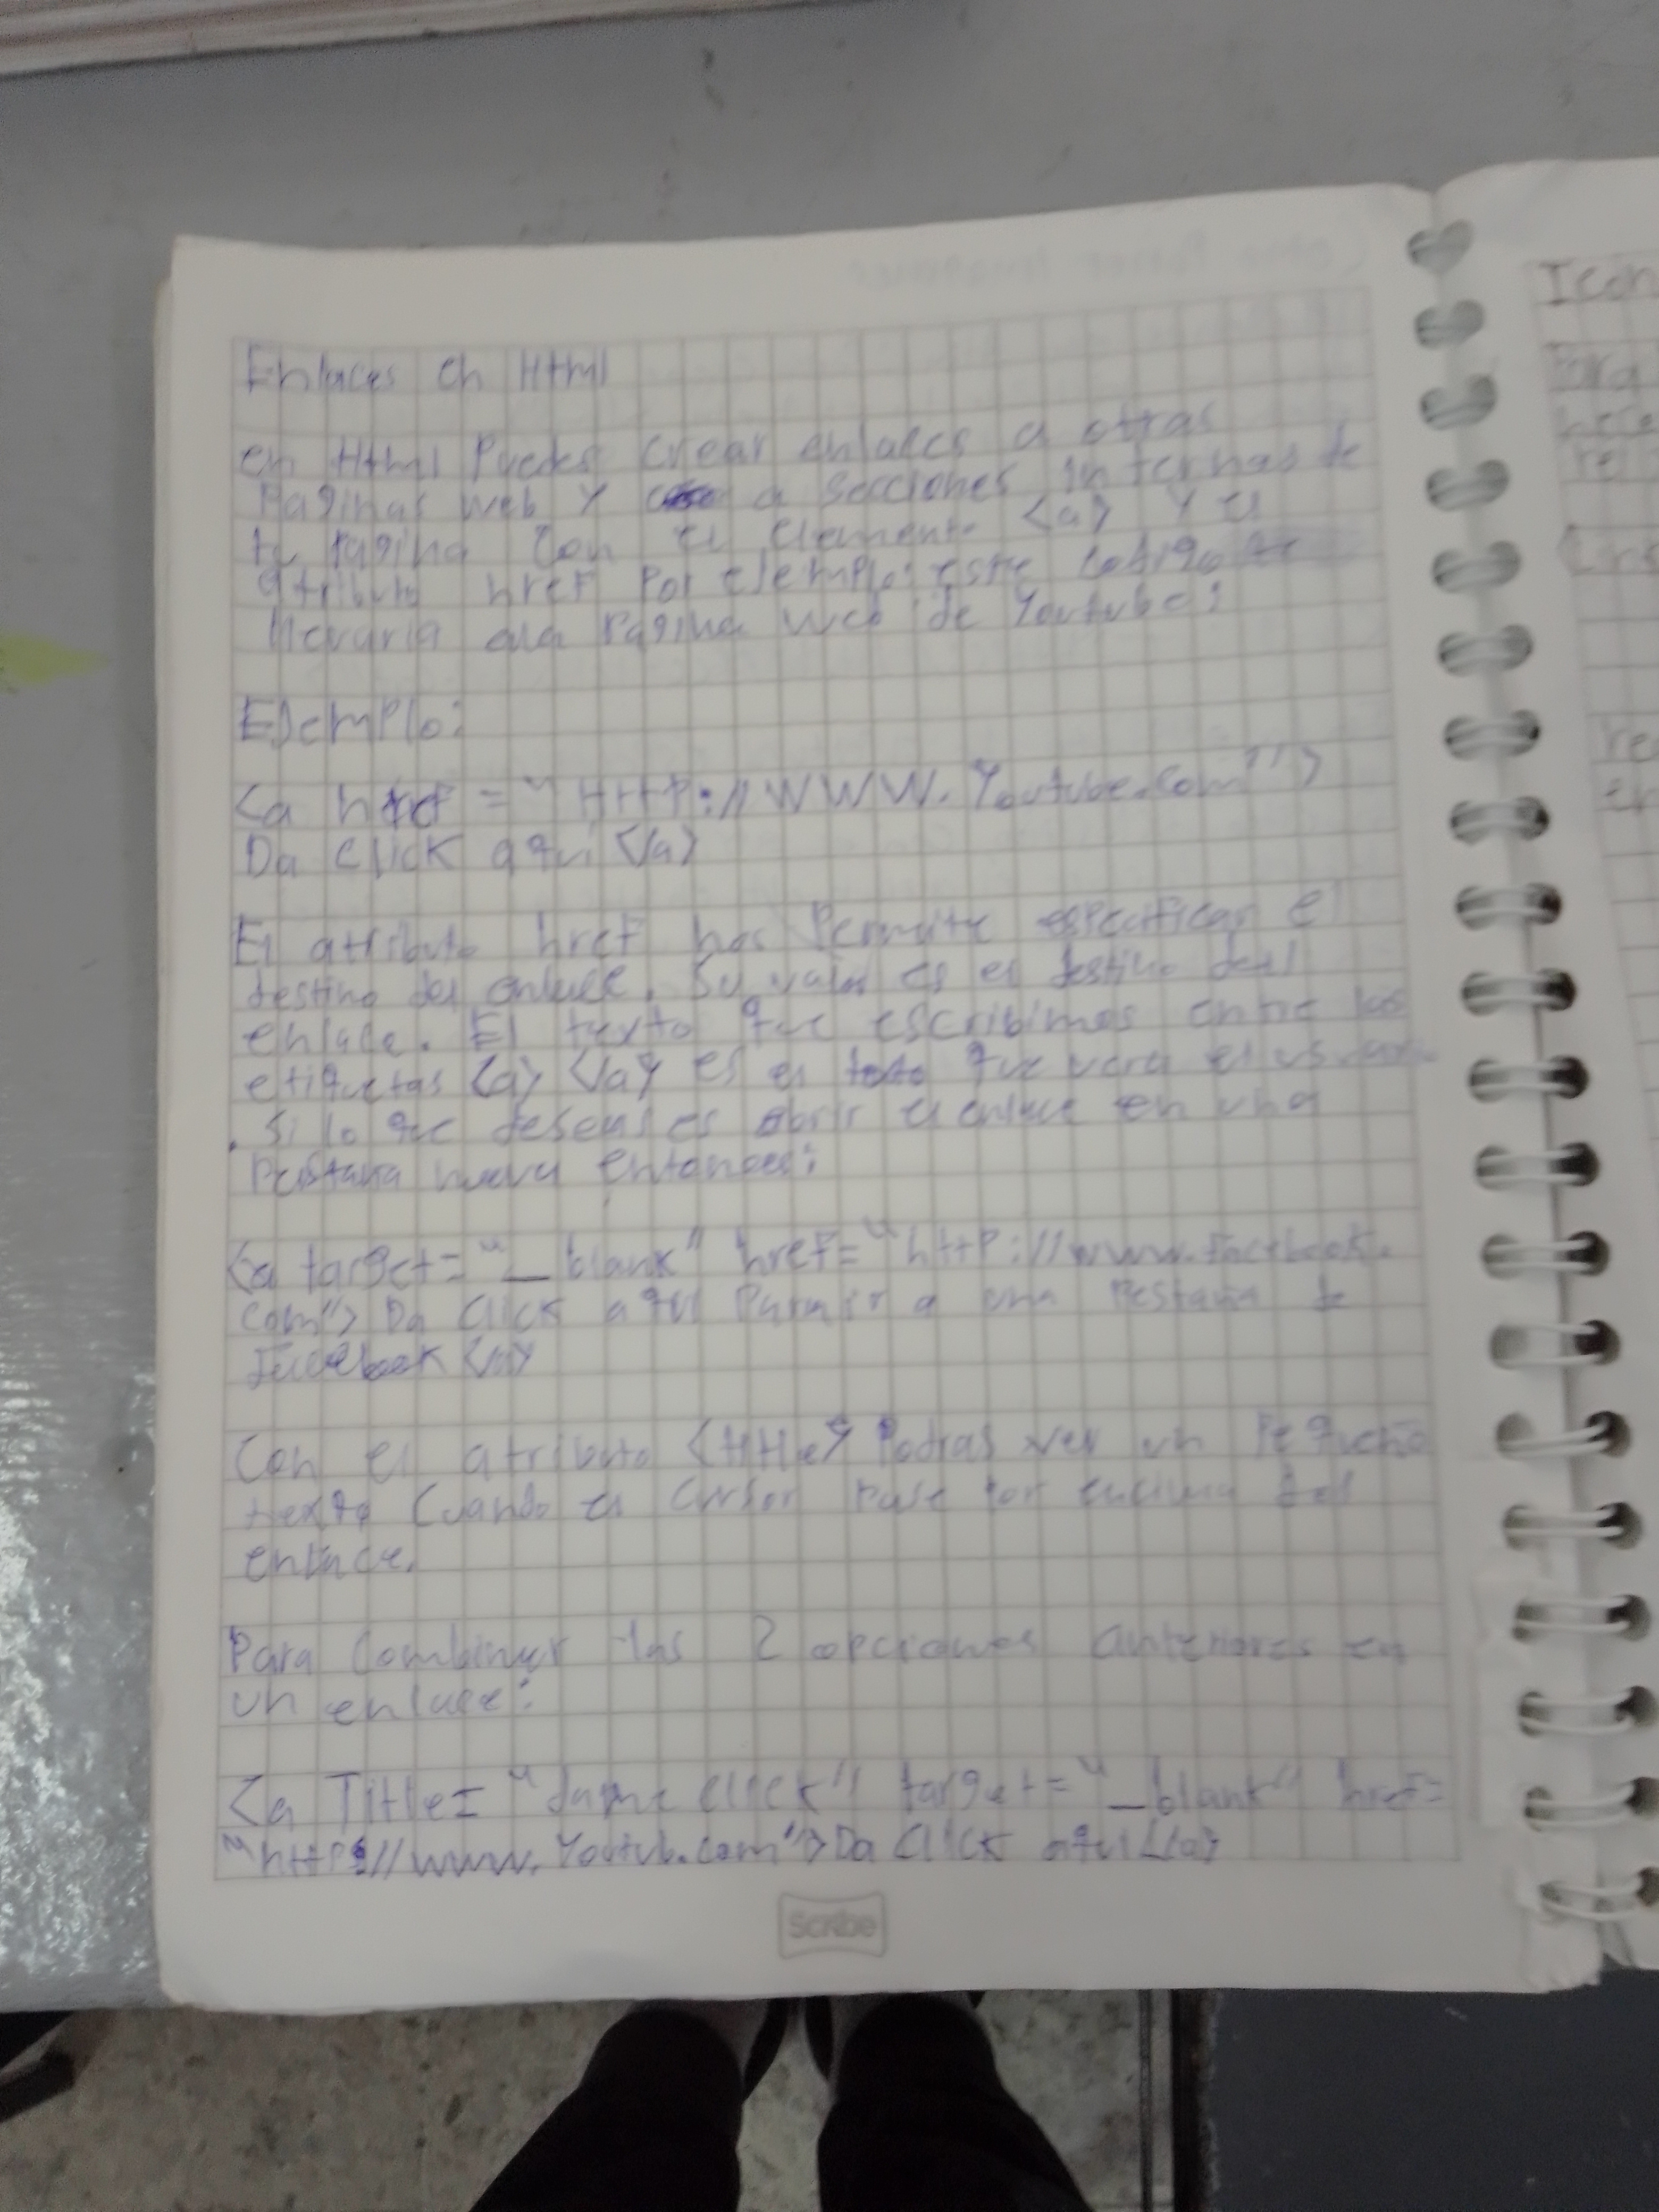 Enlaces en Html
en Html Puedes crear enlaces a otras
Paginas web y a secciones internas de
tu Pagina Con el elemento <a> Y el
atributo href Por ejemplo: este codigo te
llevaria ala Pagina web de Youtube:
Ejemplo:
<a href = "Http://WWW.Youtube.com">
Da click aqui </a>
El atributo href nos Permite especificar el
destino del enlace. Su valor es el destino del
enlace. El texto que escribimos entre las
etiquetas <a> </a> es el texto que vera el usuario
. Si lo que deseas es abrir el enlace en una
Pestaña nueva entonces:
<a target="_blank" href="http://www.facebook.
com"> Da Click aqui Para ir a una Pestaña de
facebook </a>
Con el atributo <title> Podras ver un Pequeño
texto Cuando el cursor Pase Por encima del
enlace.
Para Combinar las 2 opciones anteriores en
un enlace:
<a Title= "dame click" target="_blank" href=
"http://www.Youtub.com">Da Click aqui </a>
Scribe
Icon
Para